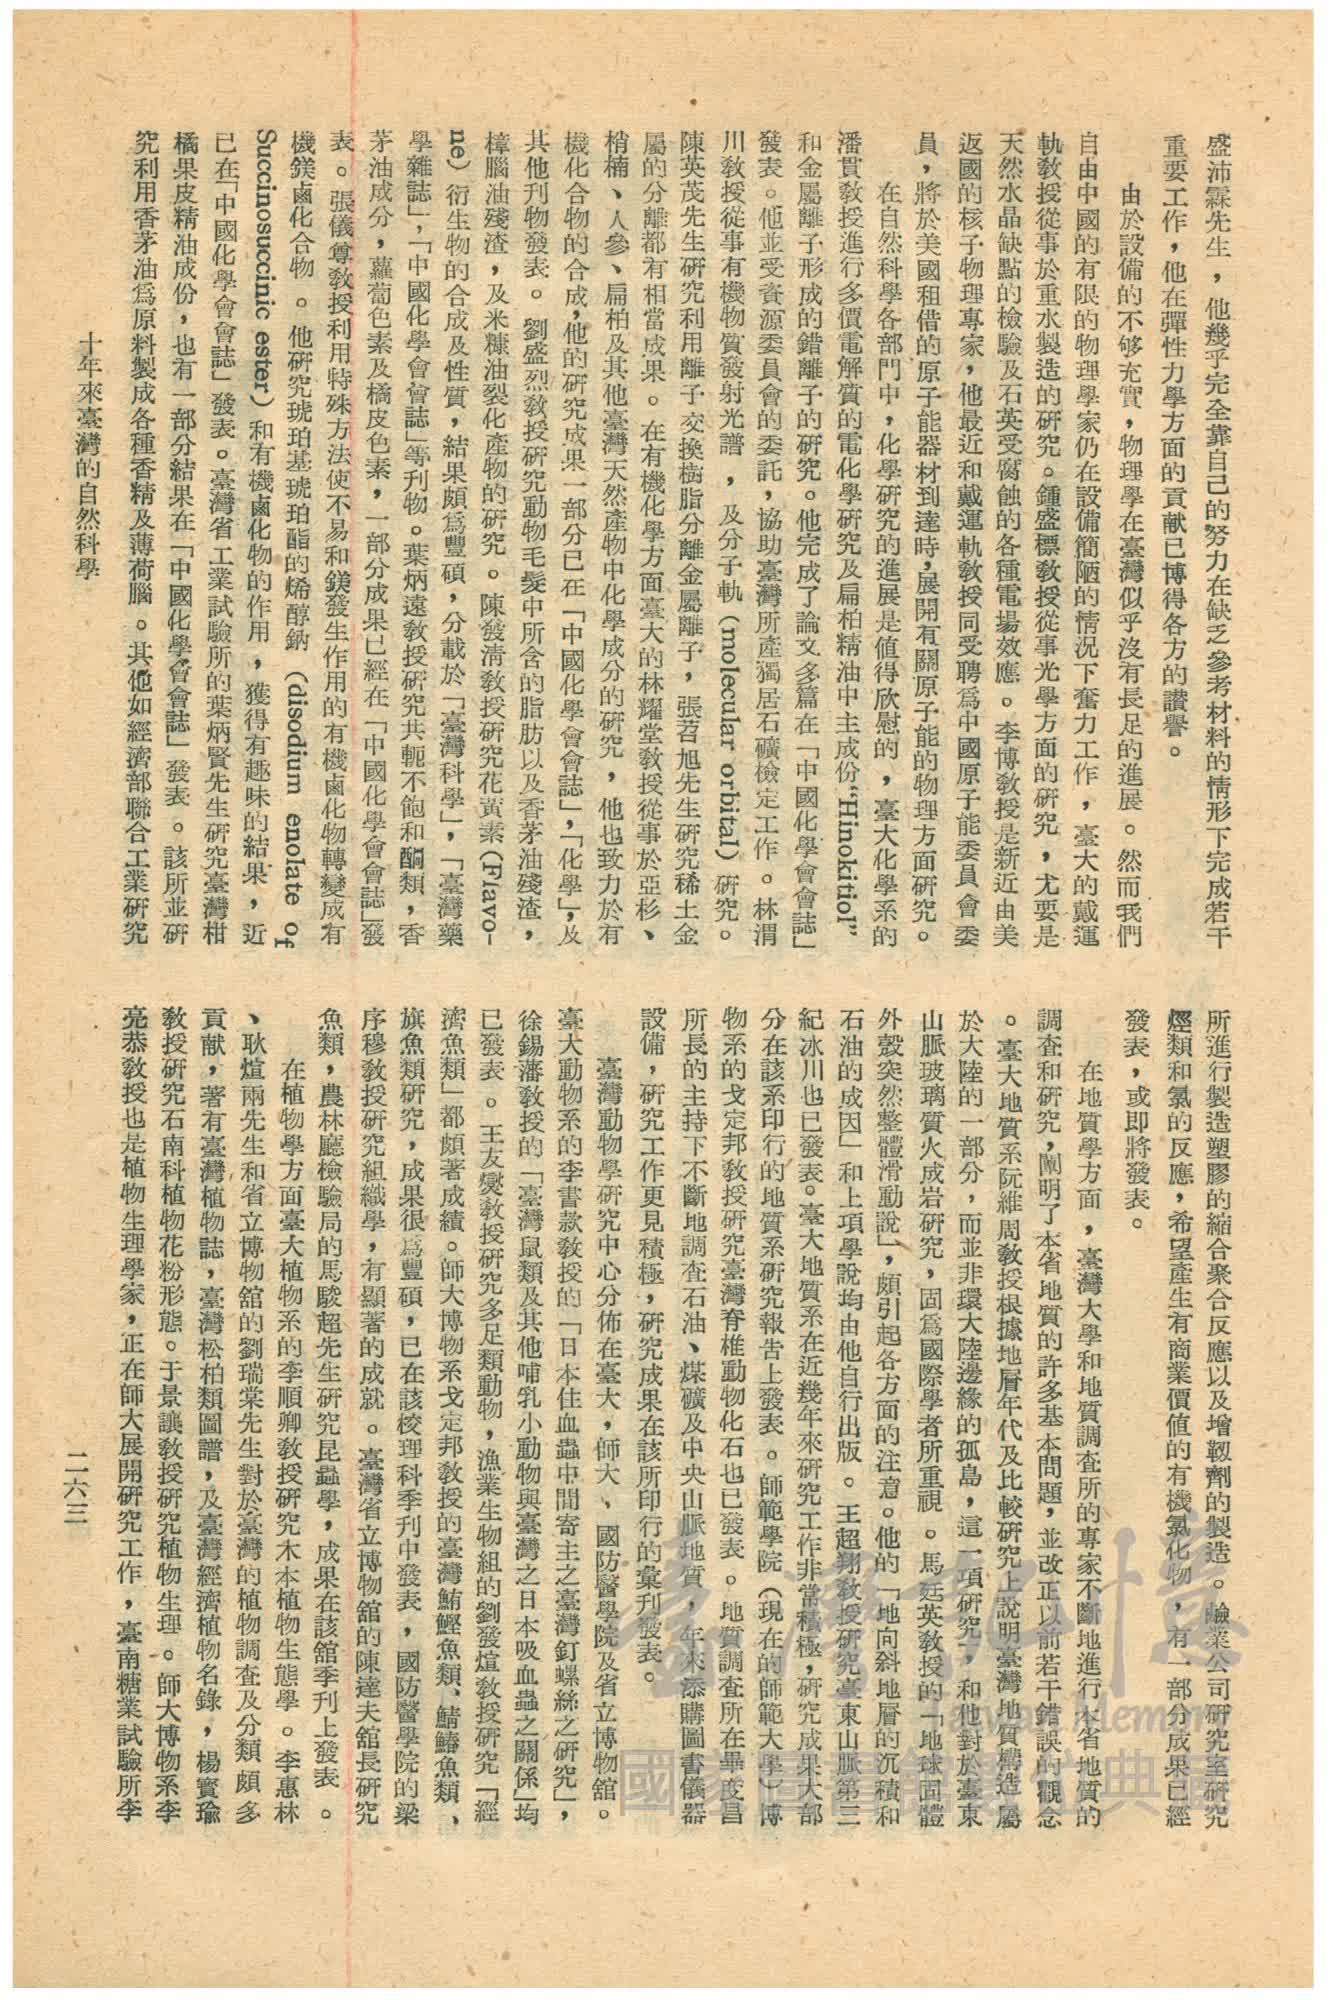 盛沛霖先生，他幾乎完全靠自己的努力在缺乏參考材料的情形下完成若干
重要工作，他在彈性力學方面的貢獻已博得各方的讚譽。
由於設備的不够充實，物理學在臺灣似乎沒有長足的進展。然而我們
自由中國的有限的物理學家仍在設備簡陋的情況下奮力工作，臺大的戴運
軌教授從事於重水製造的研究。鍾盛標教授從事光學方面的研究，尤要是
天然水晶缺點的檢驗及石英受腐蝕的各種電場效應。李博教授是新近由美
返國的核子物理專家，他最近和戴運軌教授同受聘爲中國原子能委員會委
員，將於美國租借的原子能器材到達時，展開有關原子能的物理方面研究。
在自然科學各部門中，化學研究的進展是值得欣慰的，臺大化學系的
潘貫教授進行多價電解質的電化學研究及扁柏精油中主成份“Hinokitiol”
和金屬離子形成的錯離子的研究。他完成了論文多篇在「中國化學會會誌」
發表。他並受資源委員會的委託，協助臺灣所產獨居石礦檢定工作。林渭
川教授從事有機物質發射光譜，及分子軌(molecular orbital)研究。
陳英茂先生研究利用離子交換樹脂分離金屬離子，張苕旭先生研究稀土金
屬的分離都有相當成果。在有機化學方面臺大的林耀堂教授從事於亞杉、
梢楠、人參、扁柏及其他臺灣天然產物中化學成分的研究，他也致力於有
機化合物的合成，他的研究成果一部分已在「中國化學會會誌」，「化學」，及
其他刊物發表。劉盛烈教授研究動物毛髮中所含的脂肪以及香茅油殘渣，
樟腦油殘渣，及米糠油裂化產物的研究。陳發清教授研究花黃素(Flavo-
ne)衍生物的合成及性質，結果頗爲豐碩，分載於「臺灣科學」，「臺灣藥
學雜誌」，「中國化學會會誌」等刊物。葉炳遠教授研究共軛不飽和酮類，香
茅油成分，蘿蔔色素及橘皮色素，一部分成果已經在「中國化學會會誌」發
表。張儀尊教授利用特殊方法使不易和鎂發生作用的有機鹵化物轉變成有
機鎂鹵化合物。他研究琥珀基琥珀酯的烯醇鈉(disodium enolate of
Succinosuccinic ester)和有機鹵化物的作用，獲得有趣味的結果，近
已在「中國化學會會誌」發表。臺灣省工業試驗所的葉炳賢先生研究臺灣柑
橘果皮精油成份，也有一部分結果在「中國化學會會誌」發表。該所並研
究利用香茅油爲原料製成各種香精及薄荷腦。其他如經濟部聯合工業研究
十年來臺灣的自然科學
所進行製造塑膠的縮合聚合反應以及增韌劑的製造。鹼業公司研究室研究
烴類和氯的反應，希望產生有商業價值的有機氯化物，有一部分成果已經
發表，或即將發表。
在地質學方面，臺灣大學和地質調查所的專家不斷地進行本省地質的
調查和研究，闡明了本省地質的許多基本問題，並改正以前若干錯誤的觀念
。臺大地質系阮維周教授根據地層年代及比較研究上說明臺灣地質構造屬
於大陸的一部分，而並非環大陸邊緣的孤島，這一項研究，和他對於臺東
山脈玻璃質火成岩研究，固爲國際學者所重視。馬廷英教授的「地球固體
外殼突然整體滑動說」，頗引起各方面的注意。他的「地向斜地層的沉積和
石油的成因」和上項學說均由他自行出版。王超翔教授研究臺東山脈第三
紀冰川也已發表。臺大地質系在近幾年來研究工作非常積極，研究成果大部
分在該系印行的地質系研究報告上發表。師範學院（現在的師範大學）博
物系的戈定邦教授研究臺灣脊椎動物化石也已發表。地質調查所在畢慶昌
所長的主持下不斷地調查石油、煤礦及中央山脈地質，年來添購圖書儀器
設備，研究工作更見積極，研究成果在該所印行的彙刊發表。
臺灣動物學研究中心分佈在臺大，師大、國防醫學院及省立博物舘。
臺大動物系的李書款教授的「日本住血蟲中間寄主之臺灣釘螺絲之研究」，
徐錫藩教授的「臺灣鼠類及其他哺乳小動物與臺灣之日本吸血蟲之關係」均
已發表。王友燮教授研究多足類動物，漁業生物組的劉發煊教授研究「經
濟魚類」都頗著成績。師大博物系戈定邦教授的臺灣鮪鰹魚類、鯖鰆魚類、
旗魚類研究，成果很爲豐碩，已在該校理科季刊中發表，國防醫學院的梁
序穆教授研究組織學，有顯著的成就。臺灣省立博物舘的陳達夫舘長研究
魚類，農林廳檢驗局的馬駿超先生研究昆蟲學，成果在該舘季刊上發表。
在植物學方面臺大植物系的李順卿教授研究木本植物生態學。李惠林
、耿煊兩先生和省立博物舘的劉瑞棠先生對於臺灣的植物調查及分類頗多
貢献，著有臺灣植物誌，臺灣松柏類圖譜，及臺灣經濟植物名錄，楊寶瑜
教授研究石南科植物花粉形態。于景讓教授研究植物生理。師大博物系李
亮恭教授也是植物生理學家，正在師大展開研究工作，臺南糖業試驗所李
二六三
臺灣記憶
Taiwan Memory
國家圖書館數位典藏